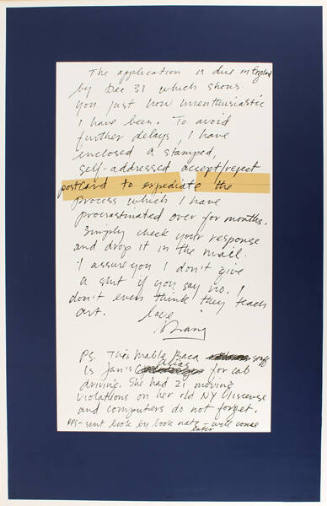 The application is due in England
by Dec 31 which shows
you just how unenthusiastic
I have been. To avoid
further delays, I have
enclosed a stamped,
self-addressed accept/reject
postcard to expediate the
process which I have
procrastinated over for months.
Simply check your response
and drop it in the mail.
I assure you I don't give
a shit if you say no. I
don't even think they teach
art.
love
PS. This Mable Baca says
is Jan's alias for cab
driving. She had 21 moving
violations on her old NY liscense
and computers do not forget.
PPS - sent book by book rate - will come
later